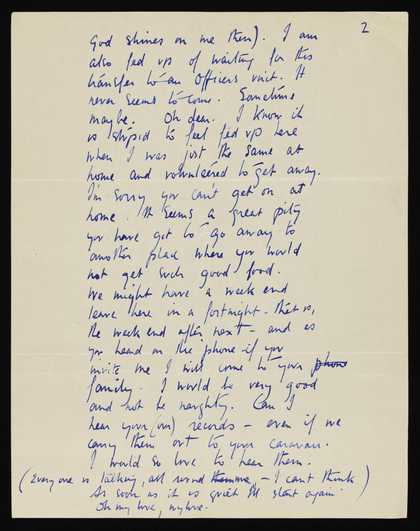 2
God shines on me then). I am
also fed up of waiting for this
transfer to an Officers unit. It
never seems to come. Sometime
maybe. Oh dear. I know it
is stupid to feel fed up here
when I was just the same at
home and volunteered to get away.
I'm sorry you can't get on at
home. It seems a great pity
you have got to go away to
another place where you would
not get such good food.
We might have a week end
leave here in a fortnight. That is,
the week end after next – and as
you heard on the phone if you
invite me I will come to your phone
family. I would be very good
and not be naughty. Can I
hear your (our) records – even if we
carry them out to your caravan.
I would so love to hear them.
(Everyone is talking, all round – I can't think)
As soon as it is quiet I'll start again.
Oh my love, my love.